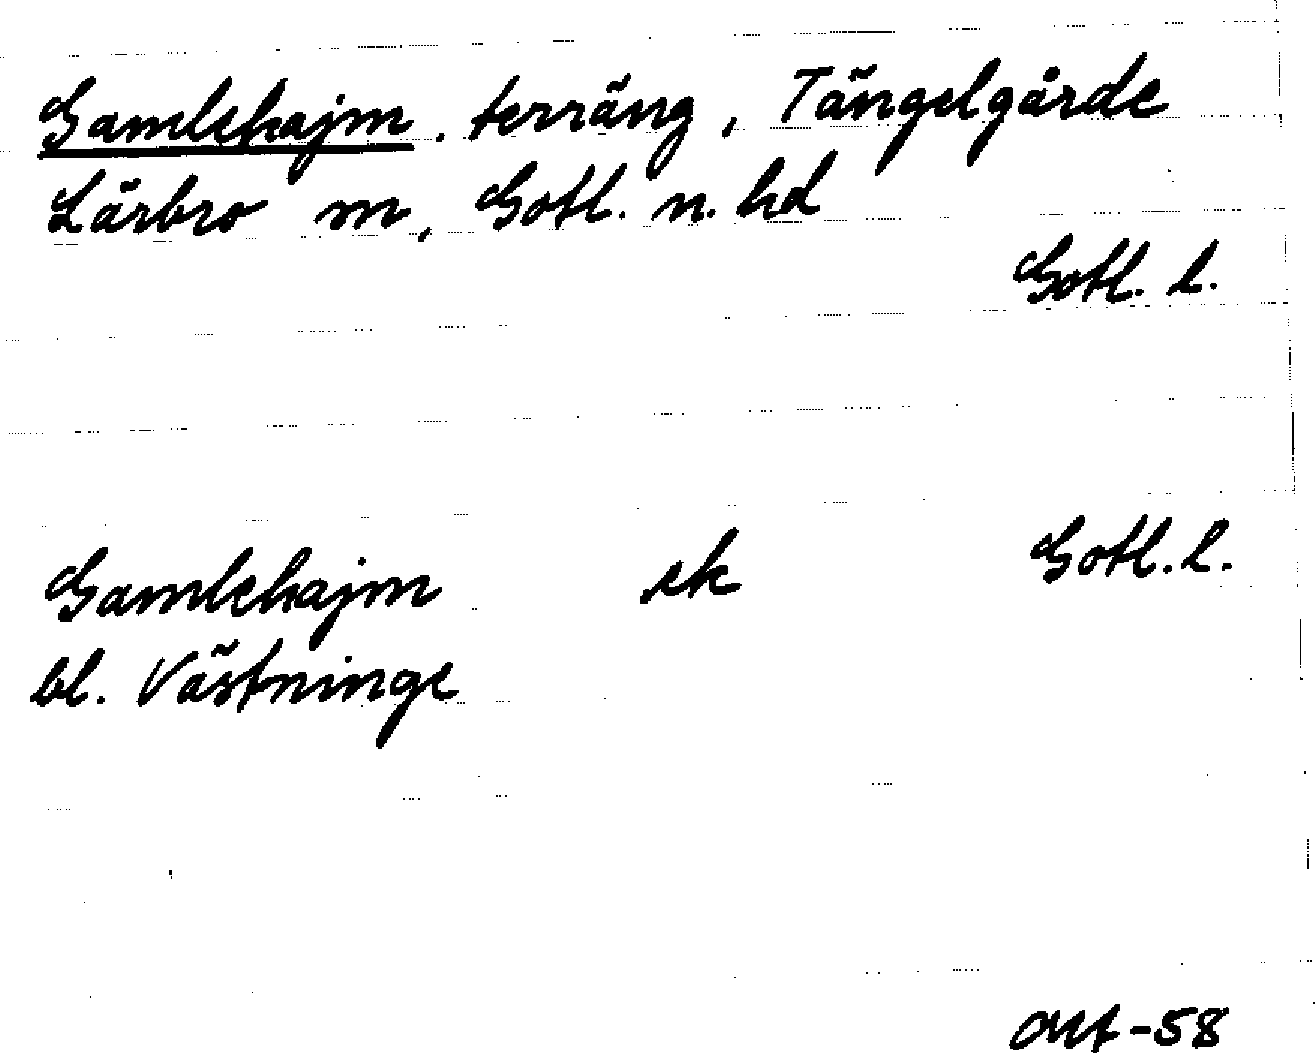 Gamlehajm. terräng, Tängelgårde
Lärbro sn, Gotl. n. hd
Gotl. l.
Gamlehajm ek Gotl. l.
bl. Västninge
-58